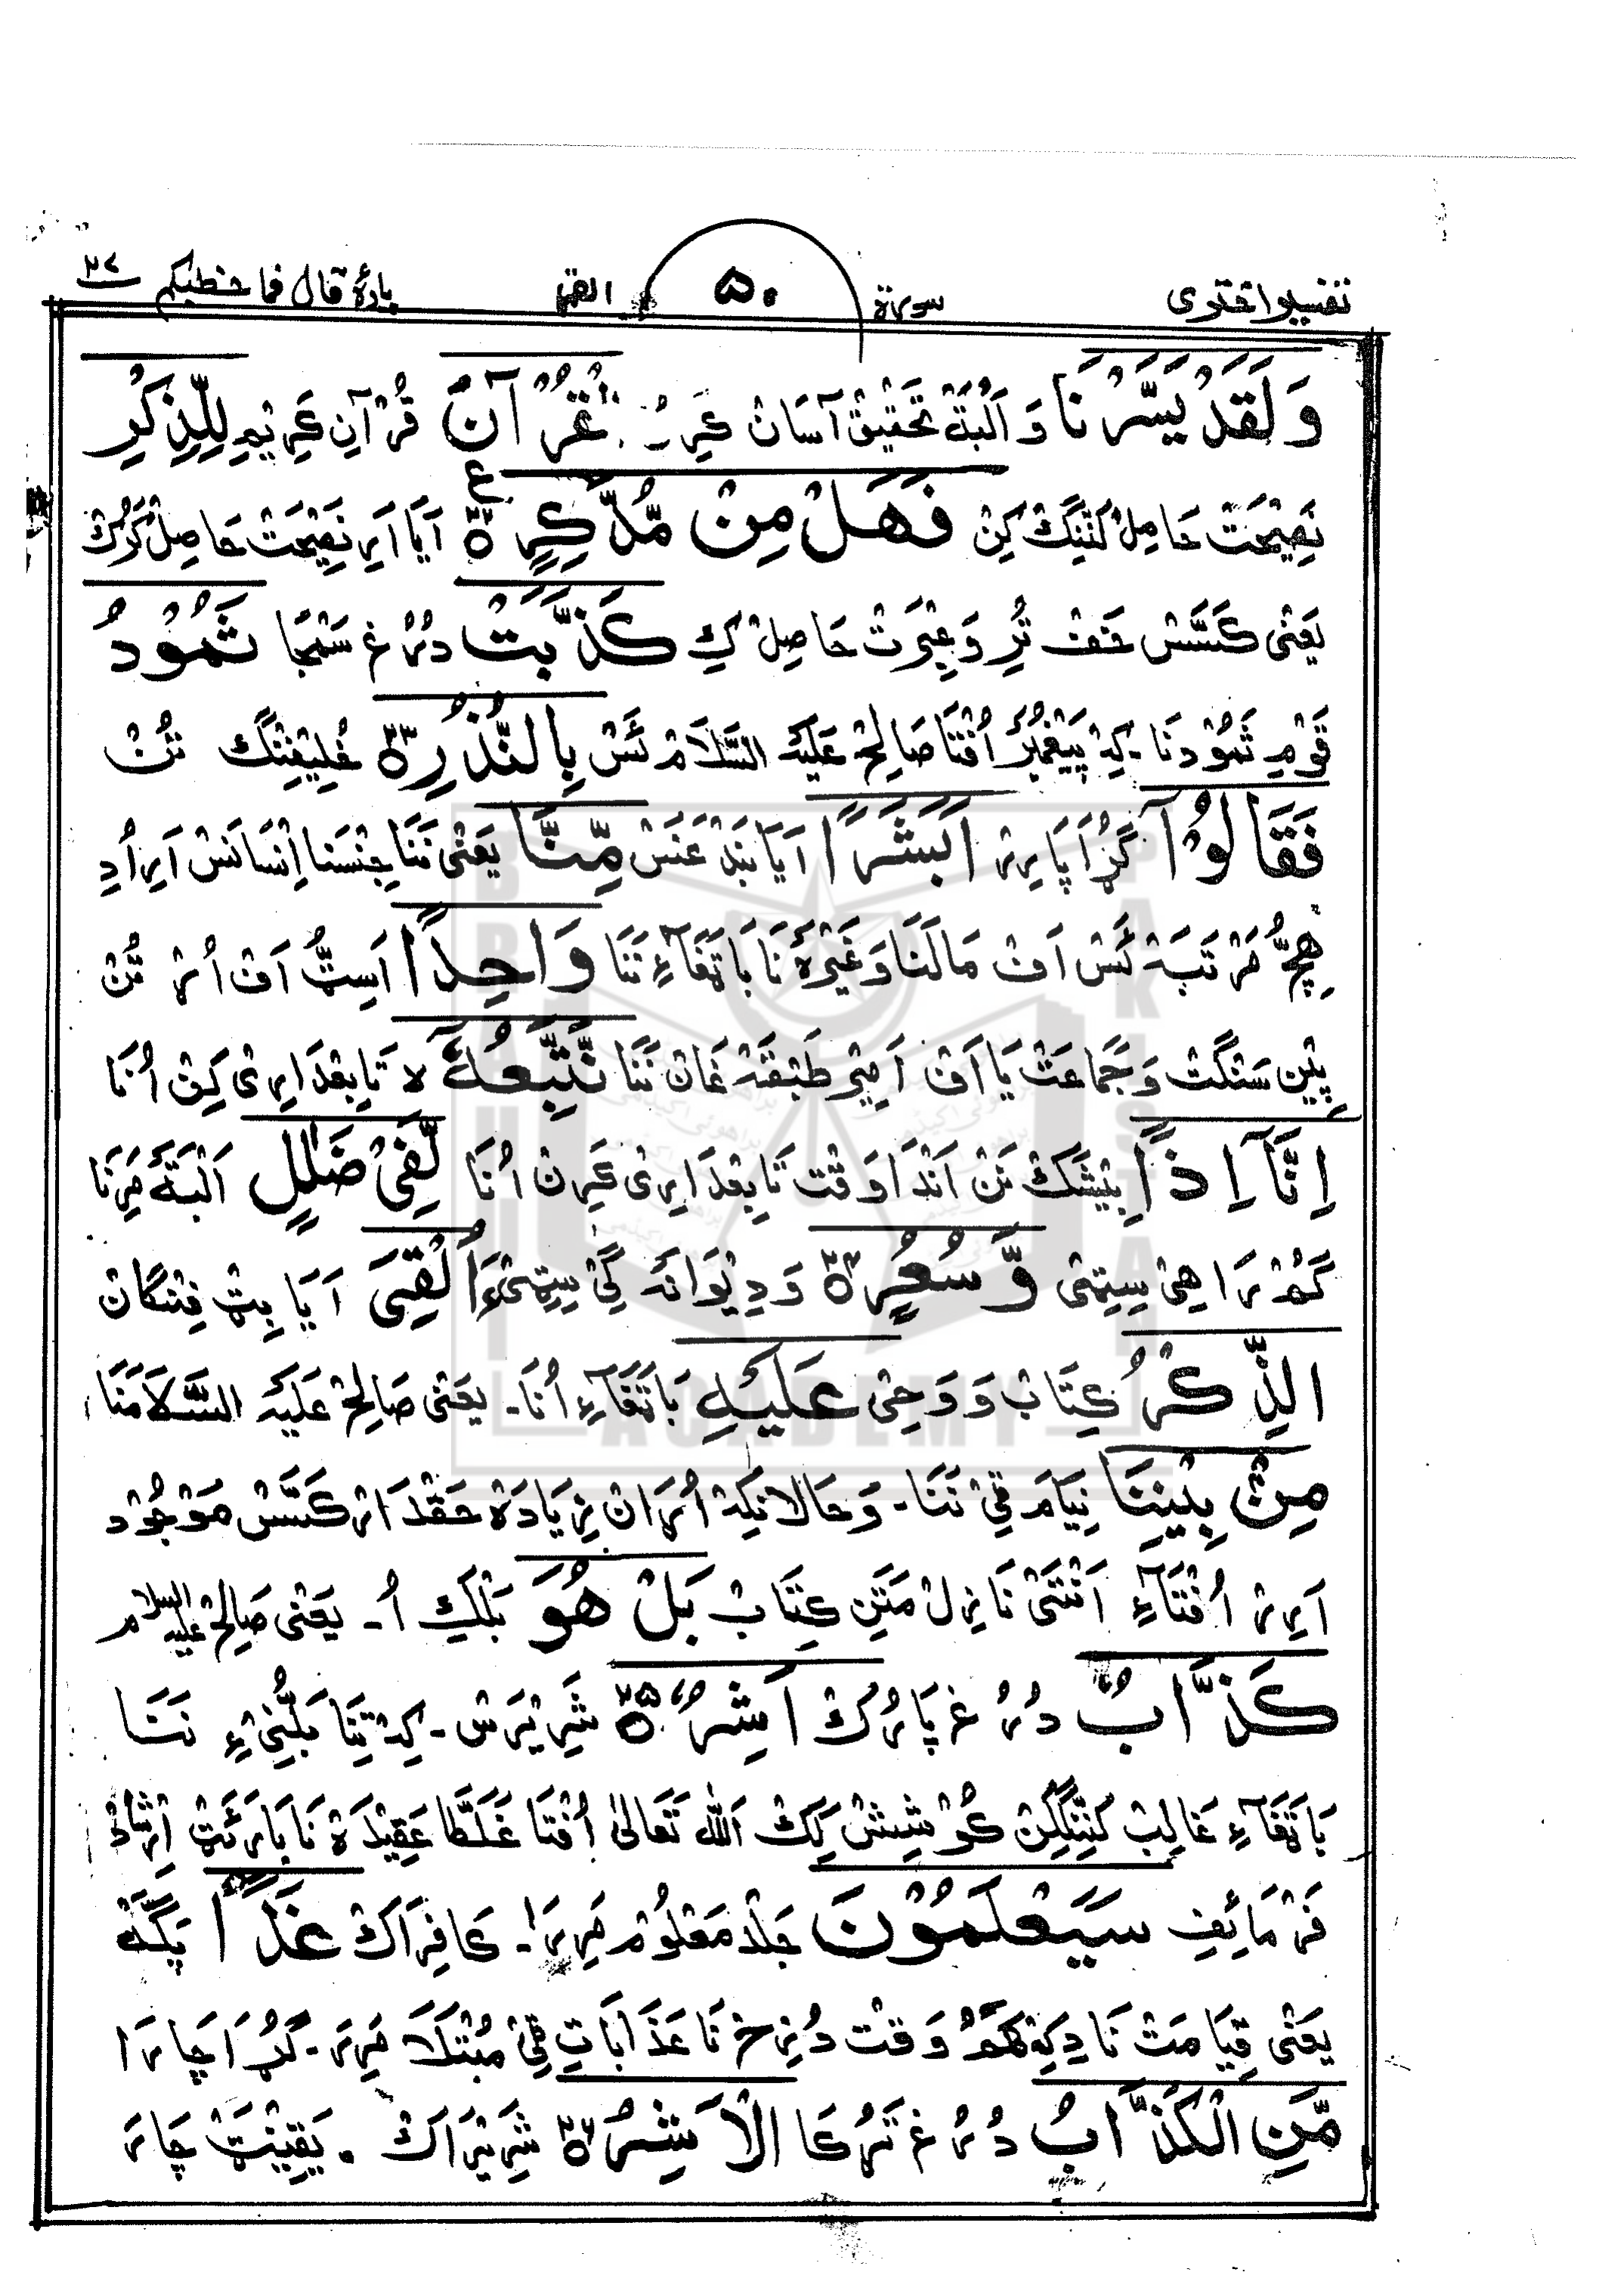 تفسیر واقتدوی سورة ۵۰ القمر پارۂ قال فما خطبکم ۲۷
وَلَقَدْ يَسَّرْنَا وَ اَلْبَتَّہ تَحْقِیْق آسَانْ کَرِیْن الْقُرْآنَ قُرْآنِ کَرِیْمِ لِلذِّكْرِ
نَصِیْحَتْ حَاصِلْ کَنِّنگ کِنْ فَهَلْ مِنْ مُّدَّكِرٍ ۝ آیَا اَرِ نَصِیْحَتْ حَاصِلْ کَرُکْ
یَعْنٰی کَسَّسْ خَفْ تُرِ وَ عِبْرَتْ حَاصِلْ کِ كَذَّبَتْ دُرُغ سَمْجَا ثَمُوْدُ
قَوْمِ ثَمُوْدنَا ۔ کِہ پَیْغَمْبَرْ اُفْتَا صَالِحْ عَلَیْہ السَّلَامْ ئَسْ بِالنُّذُرِ ۝۲۳ خُلِیْفِنْگ تُنْ
فَقَالُوْٓا گُڑَا پَارِرْ اَبَشَرًا آیَا بَنْدَغَسْ مِّنَّا یَعْنٰی نَنَا جِنْسَنَا اِنْسَانَسْ اَرِ اُدِ
ہِچُّ مَرْتَبَہ ئَسْ اَفْ مَالَنَا وَغَیْرَہ نَا بَاتَغَآءِ نَنَا وَاحِدًا اَسِٹُّ اَفْ اُرْ تُنْ
پِیْنِ سَنْگَتْ وَ جَمَاعَتْ یَا اَفْ اَمِیْر طَبْقَہ غَانْ نَنَا نَّتَّبِعُهٗٓ لا تَابِعْدَارِیْ کِنْ اُنَا
اِنَّآ اِذًا بِیْشَکْ نَنْ اَنْدَا وَقْت تَابِعْدَارِیْ کَرِنْ اُنَا لَّفِيْ ضَلٰلٍ اَلْبَتَّہ مَرِنَا
گُمْرَاہِیْ سِتِیْ وَّسُعُرٍ ۝۲۴ وَ دِیْوَانَہ گِیْ سِتِیْ ءَاُلْقِيَ آیَا بِٹْ فِنْگَانْ
الذِّكْرُ کِتَابْ وَ وَحِیْ عَلَيْهِ بَاتَغَآءِ اُنَا ۔ یَعْنٰی صَالِحْ عَلَیْہ السَّلَامْنَا
مِنْۢ بَيْنِنَا نِیَامْ ٹِیْ نَنَا ۔ وَ حَالَانِکِہ اُرَانْ زِیَادَہ حَقْدَارْ کَسَّسْ مَوْجُوْد
اَرِرْ اُفْتَآءِ اَنْتَئی نَازِلْ مَتَنِ کِتَابْ بَلْ هُوَ بَلْکِ اُ ۔ یَعْنٰی صَالِحْ علیہ السلام
كَذَّابٌ دُرُغ پَارُکْ اَشِرٌ ۝۲۵ شَرِیْرَسْ ۔ کِہ تِنَا بَلُّنِیْءِ نَنَا
بَاتَغَآءِ غَالِبْ کَنِّنگِنْ کُوْشِشْ کِکْ اَللّٰہ تَعَالٰی اُفْتَا غَلَطَا عَقِیْدَہ نَا بَارَئَٹْ اِرْشَادْ
فَرْمَائِفِ سَيَعْلَمُوْنَ جَلْد مَعْلُوْمْ مَرِرَا ۔ کَافِرَاکْ غَدًا پَگَّہ
یَعْنٰی قِیَامَتْ نَا دِ کِہ ہَمُوْ وَقْت دُزِخ نَا عَذَابَاتِ ٹِیْ مُبْتَلَا مَرِرَ ۔ گُڑَا چَارَا
مَّنِ الْكَذَّابُ دُرُغ تَرُکَا الْاَشِرُ ۝۲۶ شَرِیْرَاکْ ۔ یَقِیْنَٹْ چَارَ